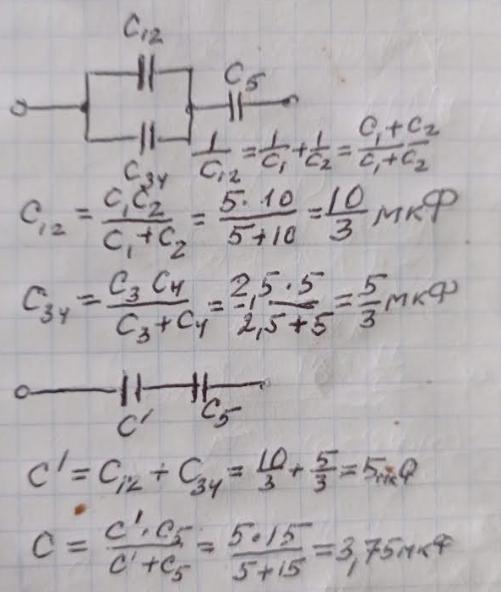 C₁₂
C₅
C₃₄
1/C₁₂ = 1/C₁ + 1/C₂ = C₁ + C₂/C₁ + C₂
C₁₂ = C₁C₂/C₁ + C₂ = 5 · 10/5 + 10 = 10/3 мкФ
C₃₄ = C₃ C₄/C₃ + C₄ = 2,5 · 5/2,5 + 5 = 5/3 мкФ
C' C₅
C' = C₁₂ + C₃₄ = 10/3 + 5/3 = 5 мкФ
C = C' · C₅/C' + C₅ = 5 · 15/5 + 15 = 3,75 мкФ